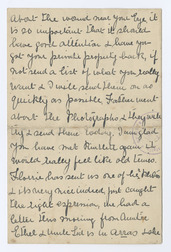 About the wound near your Eye, it
is so important that it should
have good attention & have you
got your private property back, if
not send a list of what you really
want & I will send them on as
quickly as possible, Father went
about the Photographs & they are
& send them today. I'm glad
you have met Kimber again it
would really feel like old times.
Florrie has sent us one of his Photos
& its very nice indeed, just caught
the right expression, we had a
letter this morning from Auntie
Ethel & Uncle Sid is in Arras & she